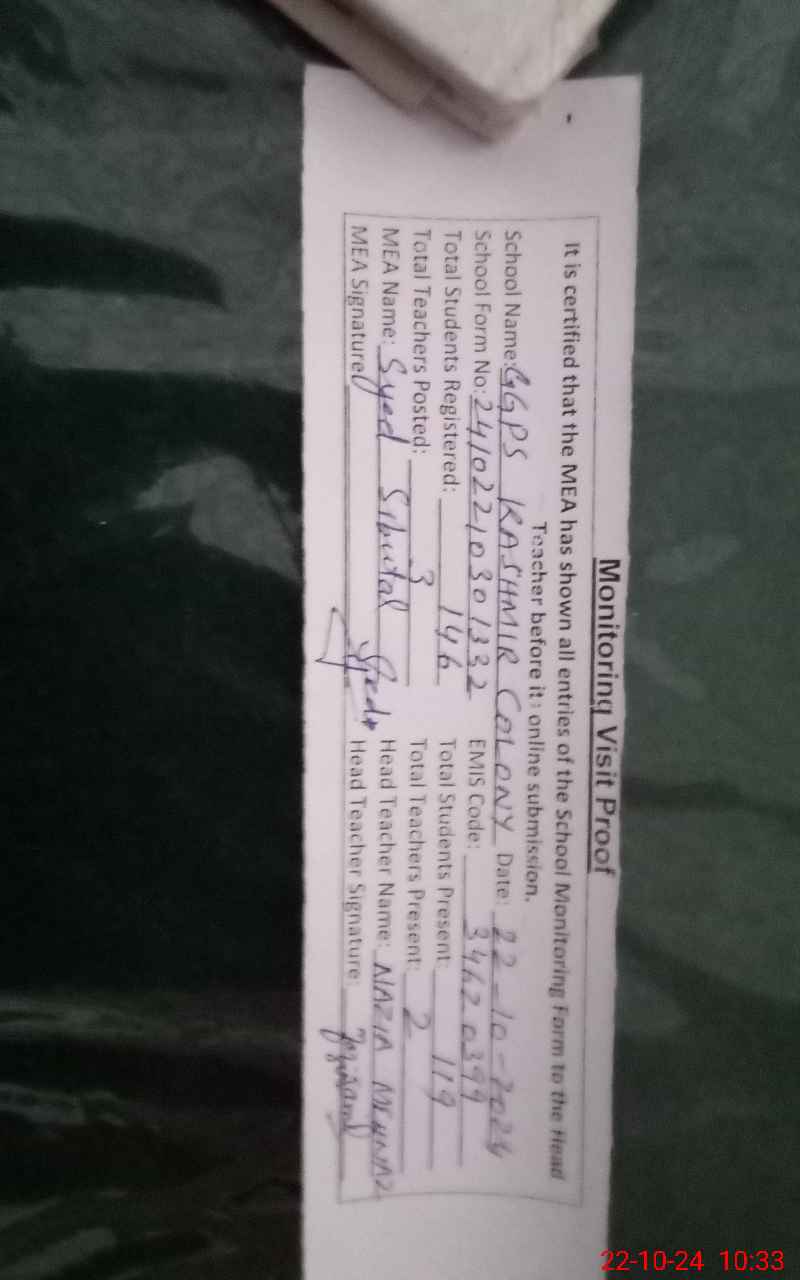 Monitoring Visit Proof
It is certified that the MEA has shown all entries of the School Monitoring Form to the Head
Teacher before its online submission.
School Name: GGPS KASHMIR COLONY Date: 22-10-2024
School Form No: 24102210301332 EMIS Code: 34620399
Total Students Registered: 146 Total Students Present: 119
Total Teachers Posted: 3 Total Teachers Present: 2
MEA Name: Syed Head Teacher Name: NAZIA MEHNAZ
MEA Signature: Head Teacher Signature:
22-10-24 10:33